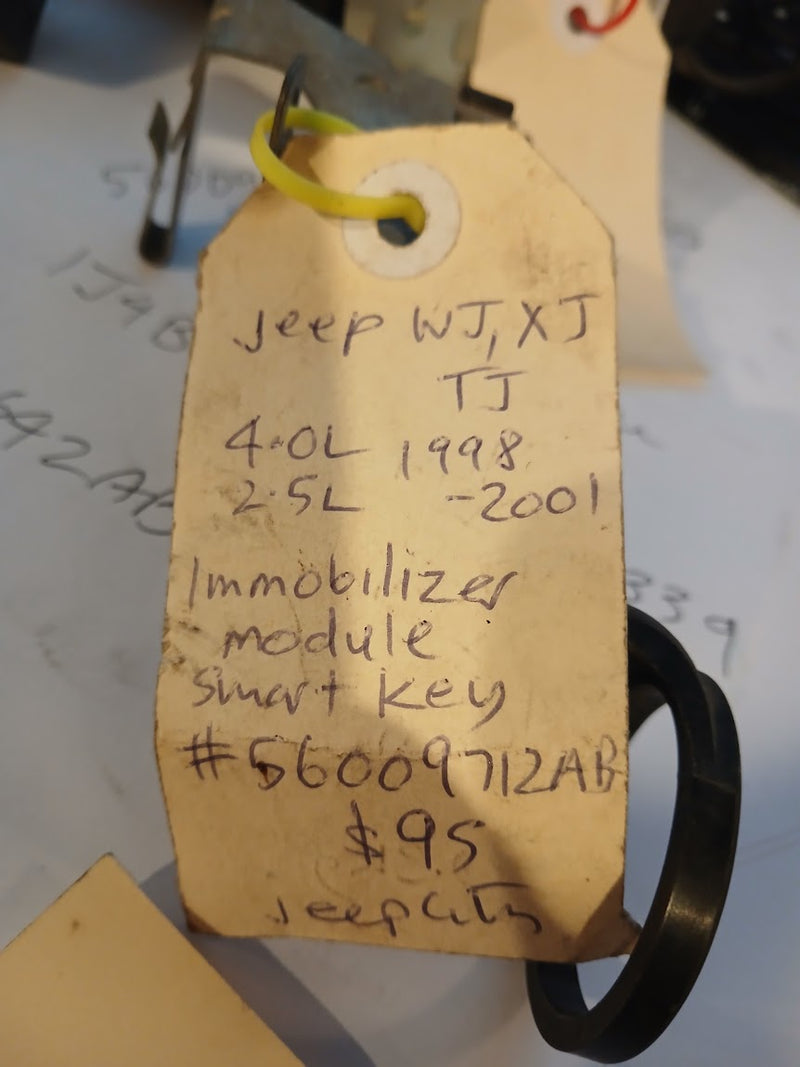 Jeep WJ, XJ
TJ
4.0L 1998
2.5L -2001
Immobilizer
module
smart key
#56009712AB
$95
JeepCity
1J4B
642AB
339